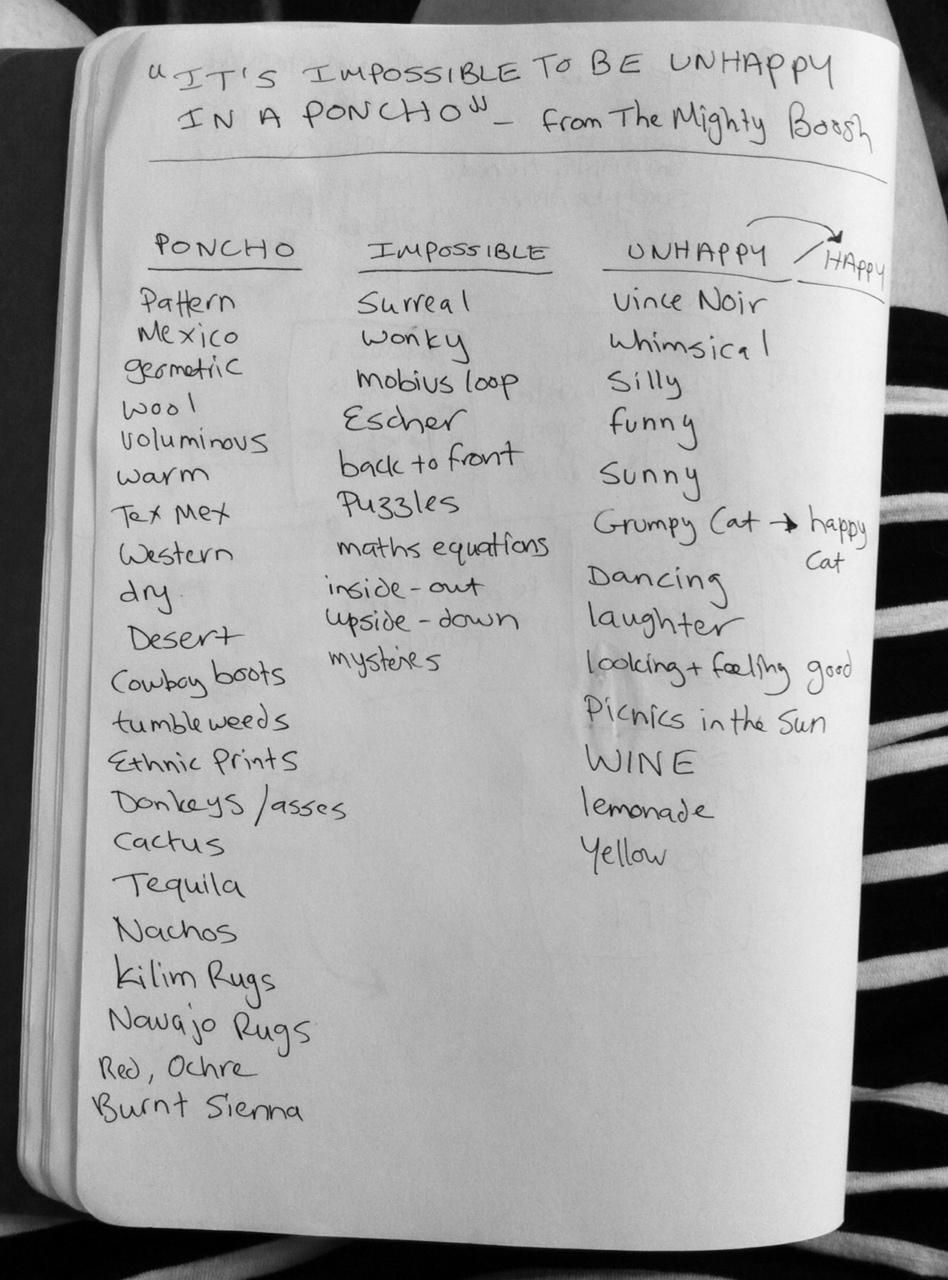 "IT'S IMPOSSIBLE TO BE UNHAPPY
IN A PONCHO" - from The Mighty Boosh
PONCHO
Pattern
Mexico
geometric
wool
voluminous
warm
Tex Mex
Western
dry
Desert
Cowboy boots
tumbleweeds
Ethnic Prints
Donkeys/asses
Cactus
Tequila
Nachos
Kilim Rugs
Navajo Rugs
Red, Ochre
Burnt Sienna
IMPOSSIBLE
Surreal
wonky
mobius loop
Escher
back to front
Puzzles
maths equations
inside-out
upside-down
mysteries
UNHAPPY / HAPPY
Vince Noir
whimsical
Silly
funny
Sunny
Grumpy Cat → happy
Cat
Dancing
laughter
looking + feeling good
Picnics in the Sun
WINE
lemonade
Yellow